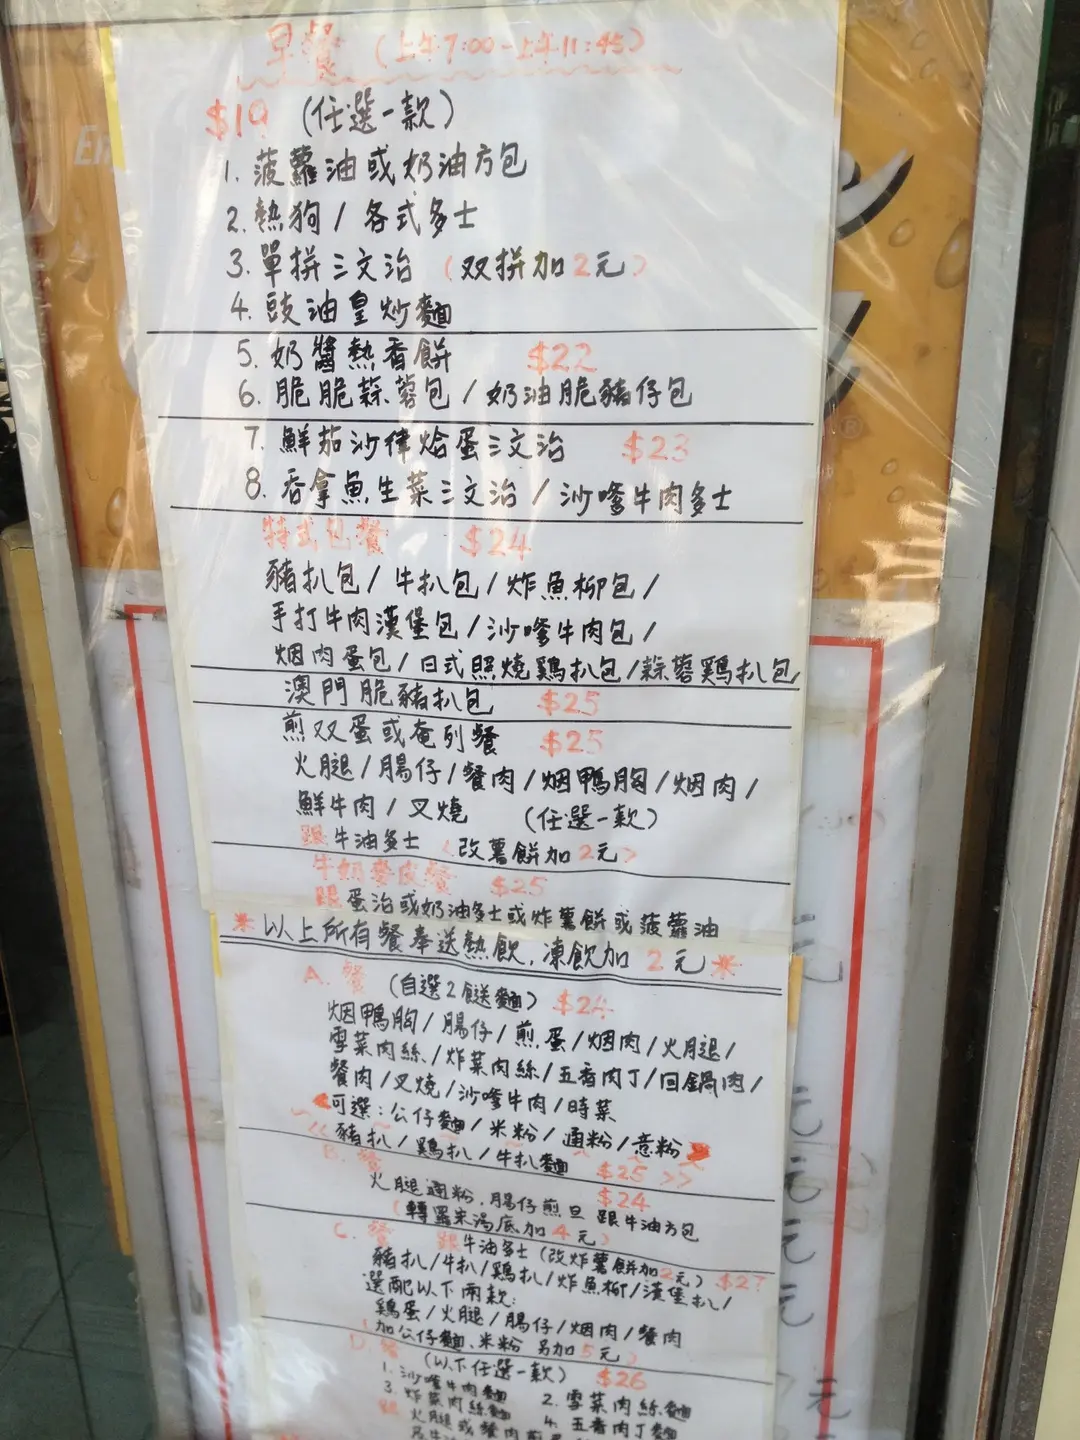 早餐 (上午7:00-上午11:45)
$19 (任選一款)
1. 菠蘿油或奶油方包
2. 熱狗 / 各式多士
3. 單拼三文治 (双拼加2元)
4. 豉油皇炒麵
5. 奶醬熱香餅 $22
6. 脆脆蒜蓉包 / 奶油脆豬仔包
7. 鮮茄沙律烚蛋三文治 $23
8. 吞拿魚生菜三文治 / 沙嗲牛肉多士
特式包餐 $24
豬扒包 / 牛扒包 / 炸魚柳包 /
手打牛肉漢堡包 / 沙嗲牛肉包 /
烟肉蛋包 / 日式照燒鷄扒包 / 蒜蓉鷄扒包
澳門脆豬扒包 $25
煎双蛋或奄列餐 $25
火腿 / 腸仔 / 餐肉 / 烟鴨胸 / 烟肉 /
鮮牛肉 / 叉燒 (任選一款)
跟牛油多士 (改薯餅加2元)
牛奶麥皮餐 $25
跟蛋治或奶油多士或炸薯餅或菠蘿油
* 以上所有餐奉送熱飲, 凍飲加2元 *
A. 餐 (自選2餸麵) $24
烟鴨胸 / 腸仔 / 煎蛋 / 烟肉 / 火腿 /
雪菜肉絲 / 炸菜肉絲 / 五香肉丁 / 回鍋肉 /
餐肉 / 叉燒 / 沙嗲牛肉 / 時菜
可選: 公仔麵 / 米粉 / 通粉 / 意粉
<< 豬扒 / 鷄扒 / 牛扒麵 $25 >>
B. 餐 $24
火腿通粉, 腸仔煎旦 跟牛油方包
(轉羅宋湯底加4元)
C. 餐 跟牛油多士 (改炸薯餅加2元) $27
豬扒 / 牛扒 / 鷄扒 / 炸魚柳 / 漢堡扒 /
選配以下兩款:
鷄蛋 / 火腿 / 腸仔 / 烟肉 / 餐肉
(加公仔麵、米粉 另加5元)
D. 餐 (以下任選一款) $26
1. 沙嗲牛肉麵 2. 雪菜肉絲麵
3. 炸菜肉絲麵 4. 五香肉丁麵
跟 火腿或餐肉煎